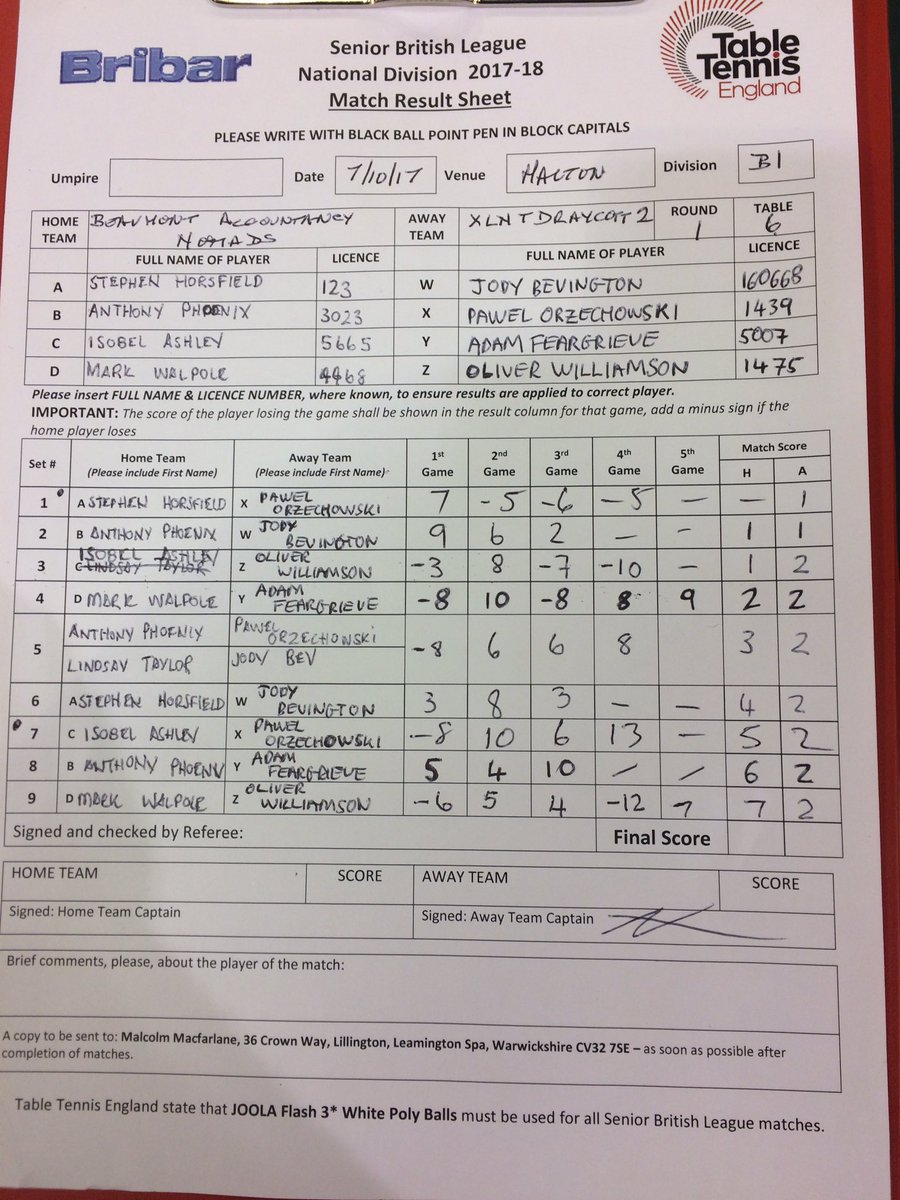 Bribar
Senior British League
National Division 2017-18
Match Result Sheet
Table
Tennis
England
PLEASE WRITE WITH BLACK BALL POINT PEN IN BLOCK CAPITALS
Umpire Date 7/10/17 Venue HALTON Division B1
HOME TEAM BEAUMONT ACCOUNTANCY NOMADS AWAY TEAM XLNT DRAYCOTT 2 ROUND 1 TABLE 6
FULL NAME OF PLAYER LICENCE FULL NAME OF PLAYER LICENCE
A STEPHEN HORSFIELD 123 W JODY BEVINGTON 160668
B ANTHONY PHOENIX 3023 X PAWEL ORZECHOWSKI 1439
C ISOBEL ASHLEY 5665 Y ADAM FEARGRIEVE 5007
D MARK WALPOLE 4468 Z OLIVER WILLIAMSON 1475
Please insert FULL NAME & LICENCE NUMBER, where known, to ensure results are applied to correct player.
IMPORTANT: The score of the player losing the game shall be shown in the result column for that game, add a minus sign if the
home player loses
Set # Home Team (Please include First Name) Away Team (Please include First Name) 1st Game 2nd Game 3rd Game 4th Game 5th Game Match Score H A
1 A STEPHEN HORSFIELD X PAWEL ORZECHOWSKI 7 -5 -6 -5 — — 1
2 B ANTHONY PHOENIX W JODY BEVINGTON 9 6 2 — - 1 1
3 C ISOBEL ASHLEY LINDSAY TAYLOR Z OLIVER WILLIAMSON -3 8 -7 -10 — 1 2
4 D MARK WALPOLE Y ADAM FEARGRIEVE -8 10 -8 8 9 2 2
5 ANTHONY PHOENIX PAWEL ORZECHOWSKI -8 6 6 8 3 2
LINDSAY TAYLOR JODY BEV
6 A STEPHEN HORSFIELD W JODY BEVINGTON 3 8 3 — — 4 2
7 C ISOBEL ASHLEY X PAWEL ORZECHOWSKI -8 10 6 13 — 5 2
8 B ANTHONY PHOENIX Y ADAM FEARGRIEVE 5 4 10 / / 6 2
9 D MARK WALPOLE Z OLIVER WILLIAMSON -6 5 4 -12 7 7 2
Signed and checked by Referee: Final Score
HOME TEAM SCORE AWAY TEAM SCORE
Signed: Home Team Captain Signed: Away Team Captain
Brief comments, please, about the player of the match:
A copy to be sent to: Malcolm Macfarlane, 36 Crown Way, Lillington, Leamington Spa, Warwickshire CV32 7SE – as soon as possible after
completion of matches.
Table Tennis England state that JOOLA Flash 3* White Poly Balls must be used for all Senior British League matches.